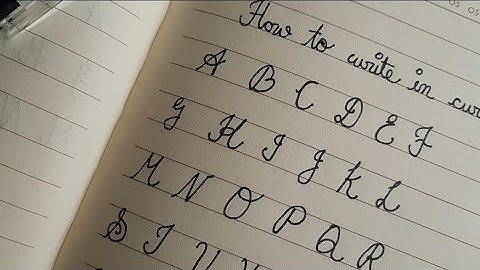 How to write in
A B C D E F
G H I J K L
M N O P Q R
S T U V